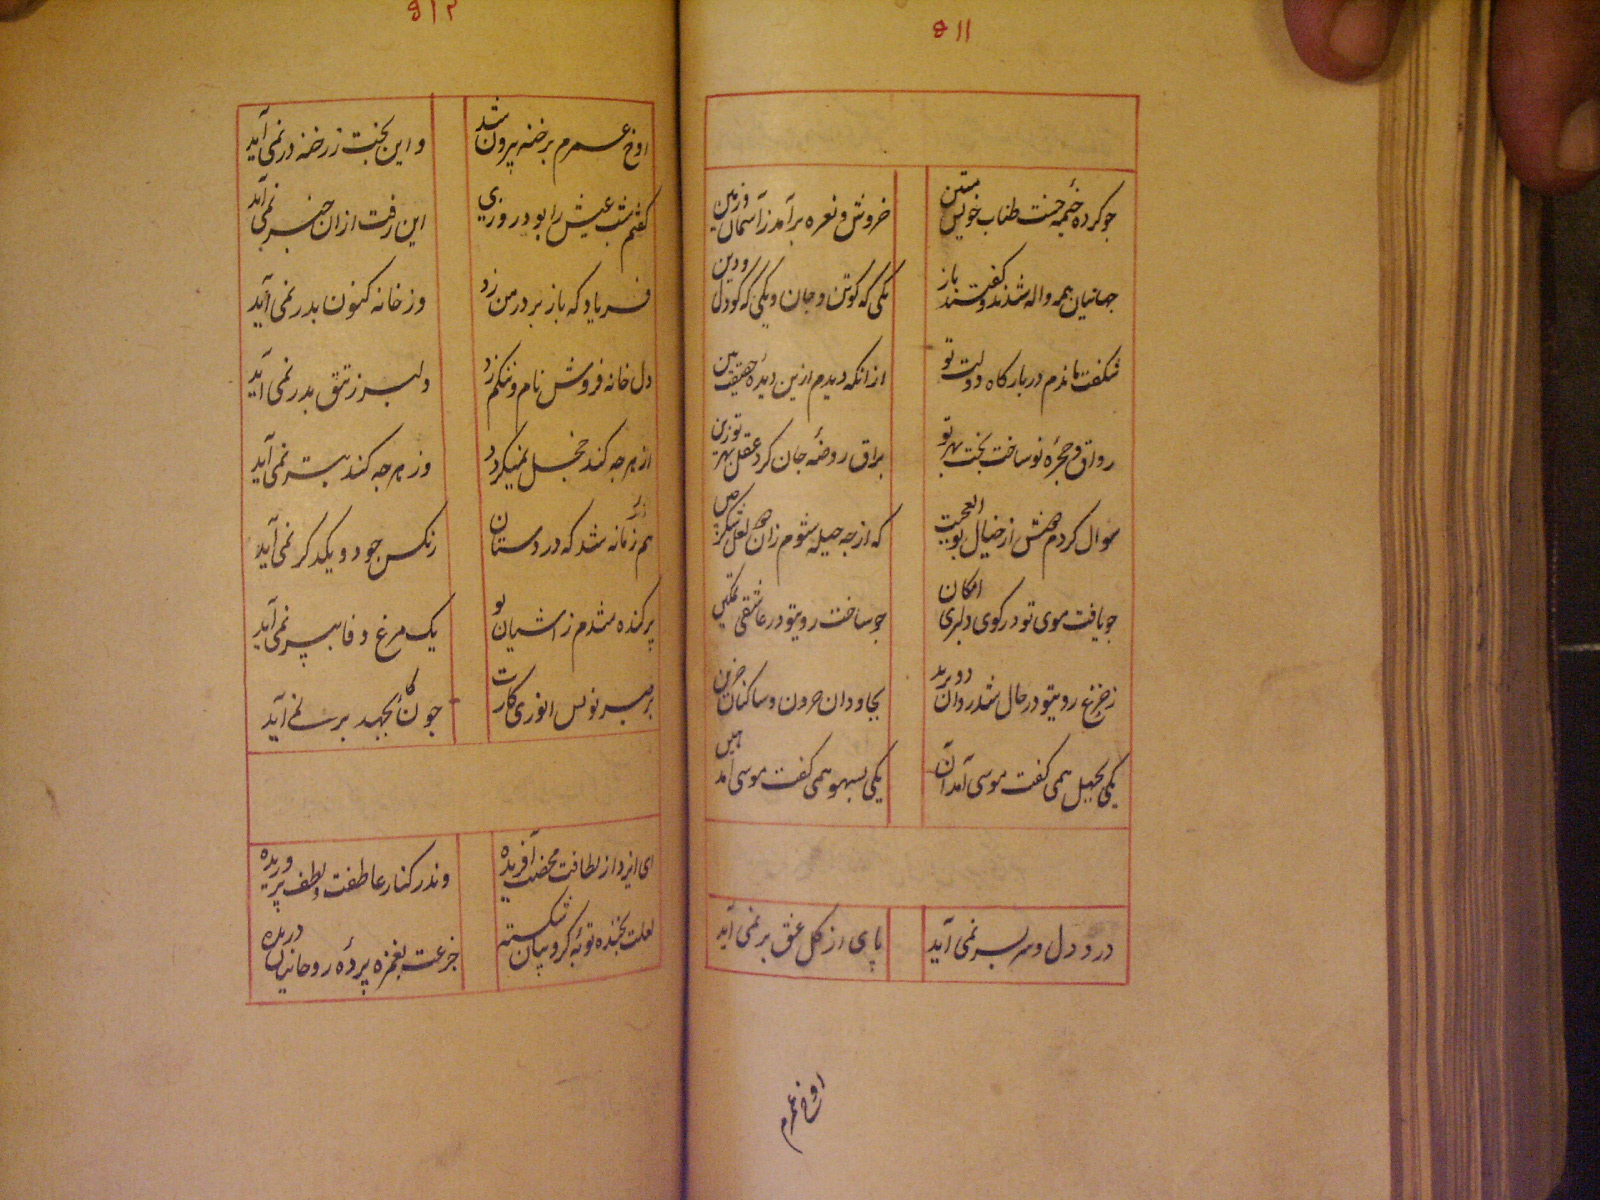 ۵۱۱
چو کرد خیمهٔ حسنت طناب خویش متین
خروش و نعره برآمد ز آسمان و زمین
جهانیان همه واله شدند و گفتند باز
یکی که کو تن و جان و یکی که کو دل و دین
شگفت ماندم در بارگاه دولت تو
از آنکه دیدم ازین دیدهٔ حقیقت بین
رواق و حجرهٔ نو ساخت بخت بهر تو
براق روضهٔ جان کرد عقل بهر تو زین
سوال کردم از خیال بوالعجبت
که از چه حیله شوم زان لعل شکر
چو یافت موی تو در کوی دلبری امکان
چو ساخت روی تو در عاشقی تمکین
روی تو در حال شد روان
بجاودان حرون و ساکنان حزین
یکی بجهل همی گفت موسی آمد آن
یکی بسهو همی گفت موسی آمد این
درد دل و سر بسر نمی آید
پای از گل عشق بر نمی آید
اوخ عمرم
۵۱۲
اوخ عمرم برخنه بیرون شد
و این بخت ز رخنه در نمی آید
گفتم شب عیش را بود روزی
این رفت از آن خبر نمی آید
فریاد که باز بر در من زد
وز خانه کنون بدر نمی آید
دل خانه فروش نام و ننگم زد
دلبر ز تتق بدر نمی آید
از هرچه کند خجل نمیگردد
وز هرچه کند بتر نمی آید
هم زمانه شد که در دستان
رنگش جو دو یکدگر نمی آید
پرکنده شدم ز آشیان او
یک مرغ وفا بپر نمی آید
بر صبر نویس انوری کارت
چون کان بجهد بر نمی آید
ای ایزد از لطافت محضت آفریده
وندر کنار عاطفت و لطف پروریده
لعلت بخنده توبهٔ کروبیان شکسته
جزعت بغمزه پردهٔ روحانیان دریده